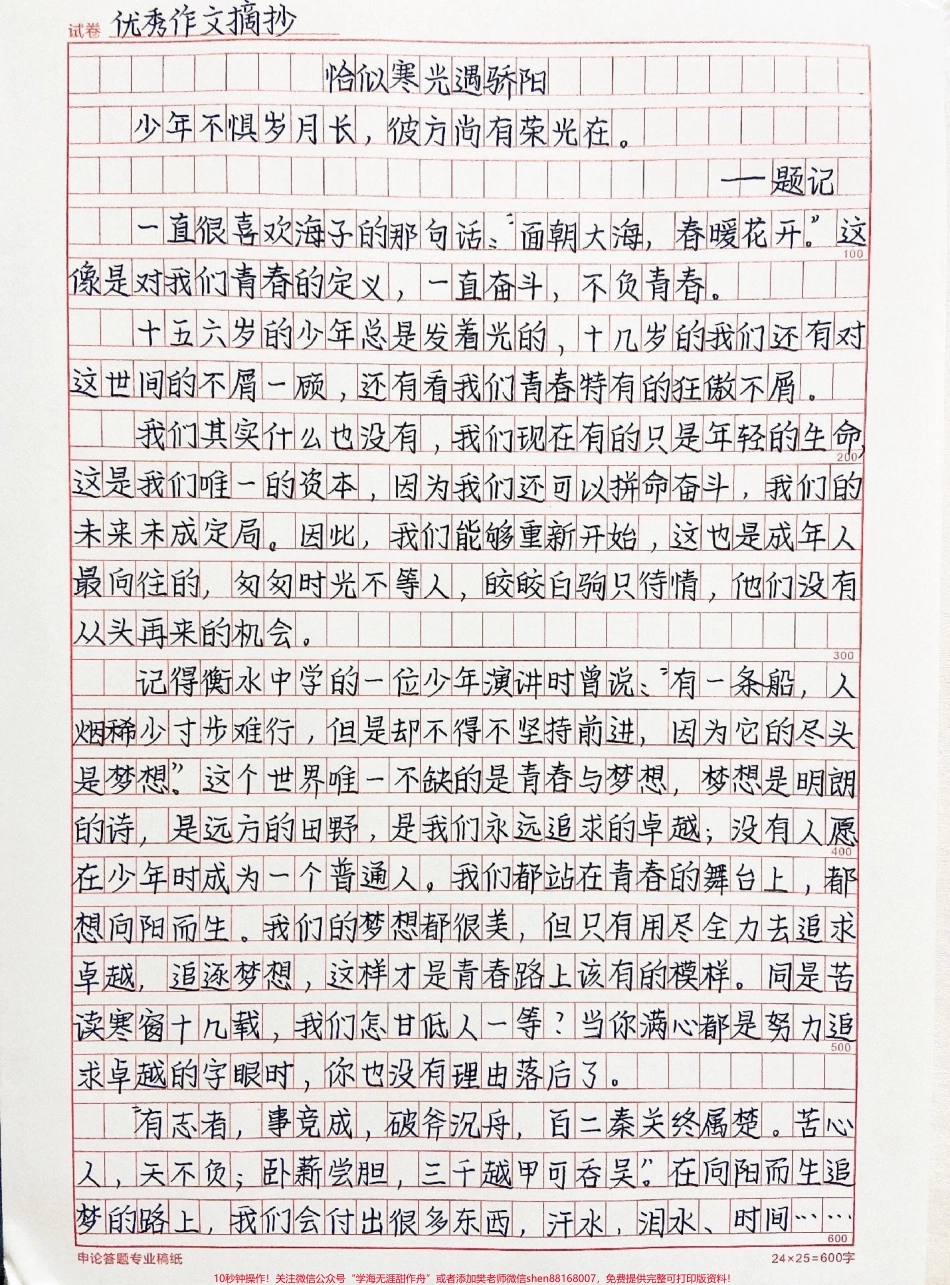 试卷 优秀作文摘抄
恰似寒光遇骄阳
少年不惧岁月长，彼方尚有荣光在。
——题记
一直很喜欢海子的那句话：“面朝大海，春暖花开。”这
100
像是对我们青春的定义，一直奋斗，不负青春。
十五六岁的少年总是发着光的，十几岁的我们还有对
这世间的不屑一顾，还有看我们青春特有的狂傲不屑。
我们其实什么也没有，我们现在有的只是年轻的生命，
200
这是我们唯一的资本，因为我们还可以拼命奋斗，我们的
未来未成定局。因此，我们能够重新开始，这也是成年人
最向往的，匆匆时光不等人，皎皎白驹只待情，他们没有
从头再来的机会。
300
记得衡水中学的一位少年演讲时曾说：“有一条船，人
烟稀少寸步难行，但是却不得不坚持前进，因为它的尽头
是梦想”。这个世界唯一不缺的是青春与梦想，梦想是明朗
的诗，是远方的田野，是我们永远追求的卓越；没有人愿
400
在少年时成为一个普通人。我们都站在青春的舞台上，都
想向阳而生。我们的梦想都很美，但只有用尽全力去追求
卓越，追逐梦想，这样才是青春路上该有的模样。同是苦
读寒窗十几载，我们怎甘低人一等？当你满心都是努力追
500
求卓越的字眼时，你也没有理由落后了。
“有志者，事竟成，破斧沉舟，百二秦关终属楚。苦心
人，天不负；卧薪尝胆，三千越甲可吞吴”。在向阳而生追
梦的路上，我们会付出很多东西，汗水，泪水、时间……
600
申论答题专业稿纸 24×25=600字
10秒钟操作！关注微信公众号“学海无涯甜作舟”或者添加樊老师微信shen88168007，免费提供完整可打印版资料！